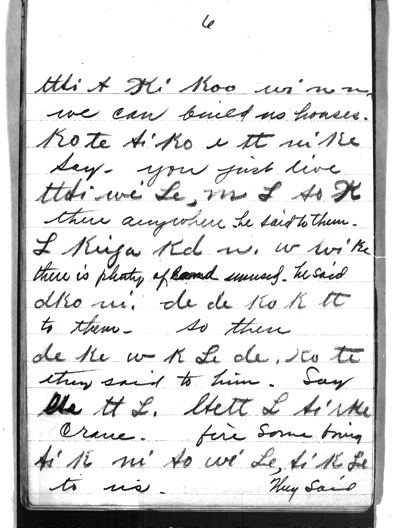 6
ttti A Ki Koo wi n n
we can build us houses.
Ko te Ai Ko e tt ni Ke
Say. you just live
ttti we Le, m L so K
there anywhere he said to them.
L Kiya Kd n. w wi Ke
there is plenty of unused. he said
dko ni. de de Ko K tt
to them. so then
de Ke w K Le de, Ko te
they said to him. Say
tt L. Ai Ke
Crane. fire Some bring
Ai K ni to we Le, Ai K Le
to us. They Said